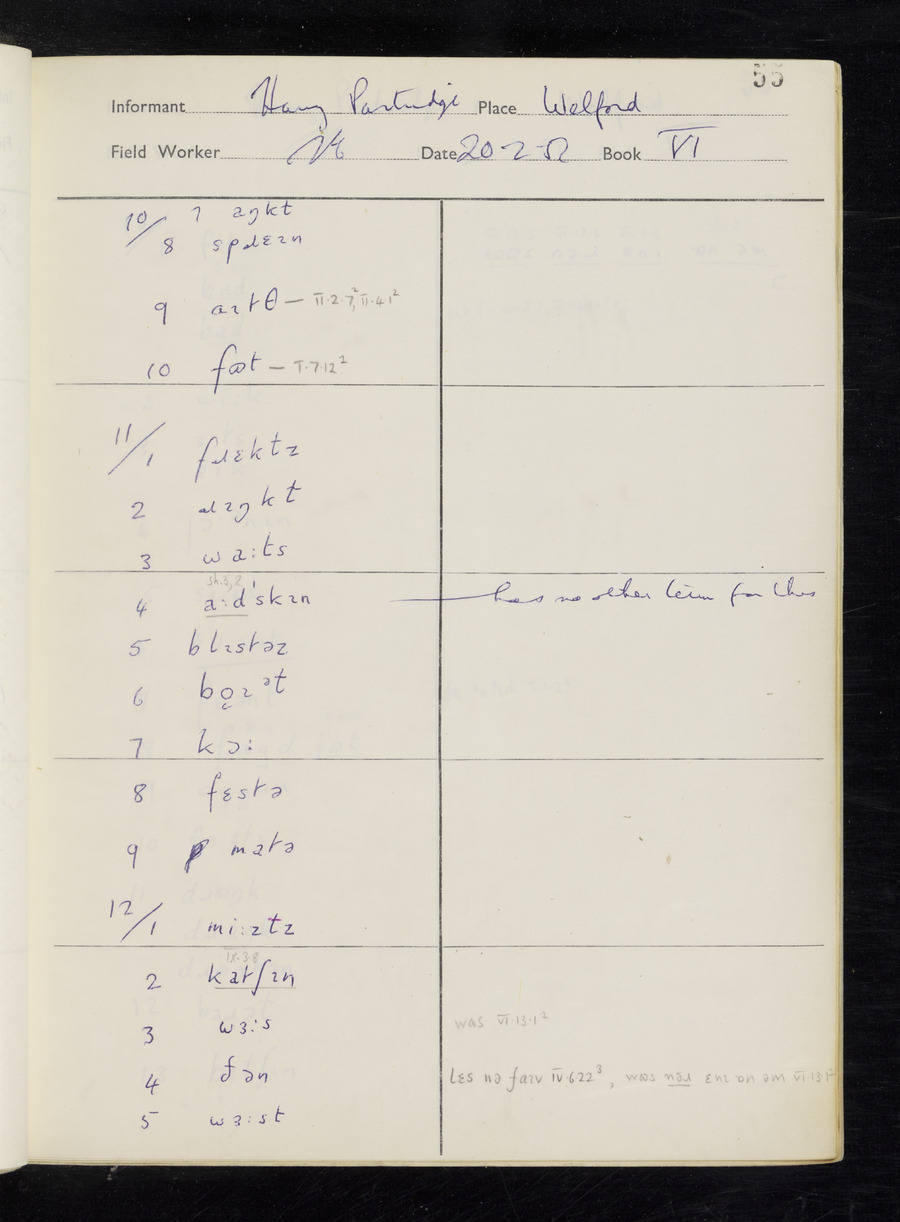 55
Informant Harry Partridge Place Welford
Field Worker Date 20-2-52 Book VI
10/ 7 aŋkt
8 splɛɪn
9 aɪtθ — II·2·7², II·4·1²
10 fat — I·7·12²
11/1 fɹɛktɪ
2 ɹɪŋkt
3 wa:ts
sh.3,2
4 a:d'skɪn — has no other term for this
5 blɪstəz
6 bo̜ɪət
7 kɔ:
8 fɛstə
9 matə
12/1 mi:ztɪ
IX·3·8
2 katʃɪn
3 wɜ:s was VI·13·1²
4 ðən lɛs nə faɪv IV·6·22³, was
5 wɜ:st